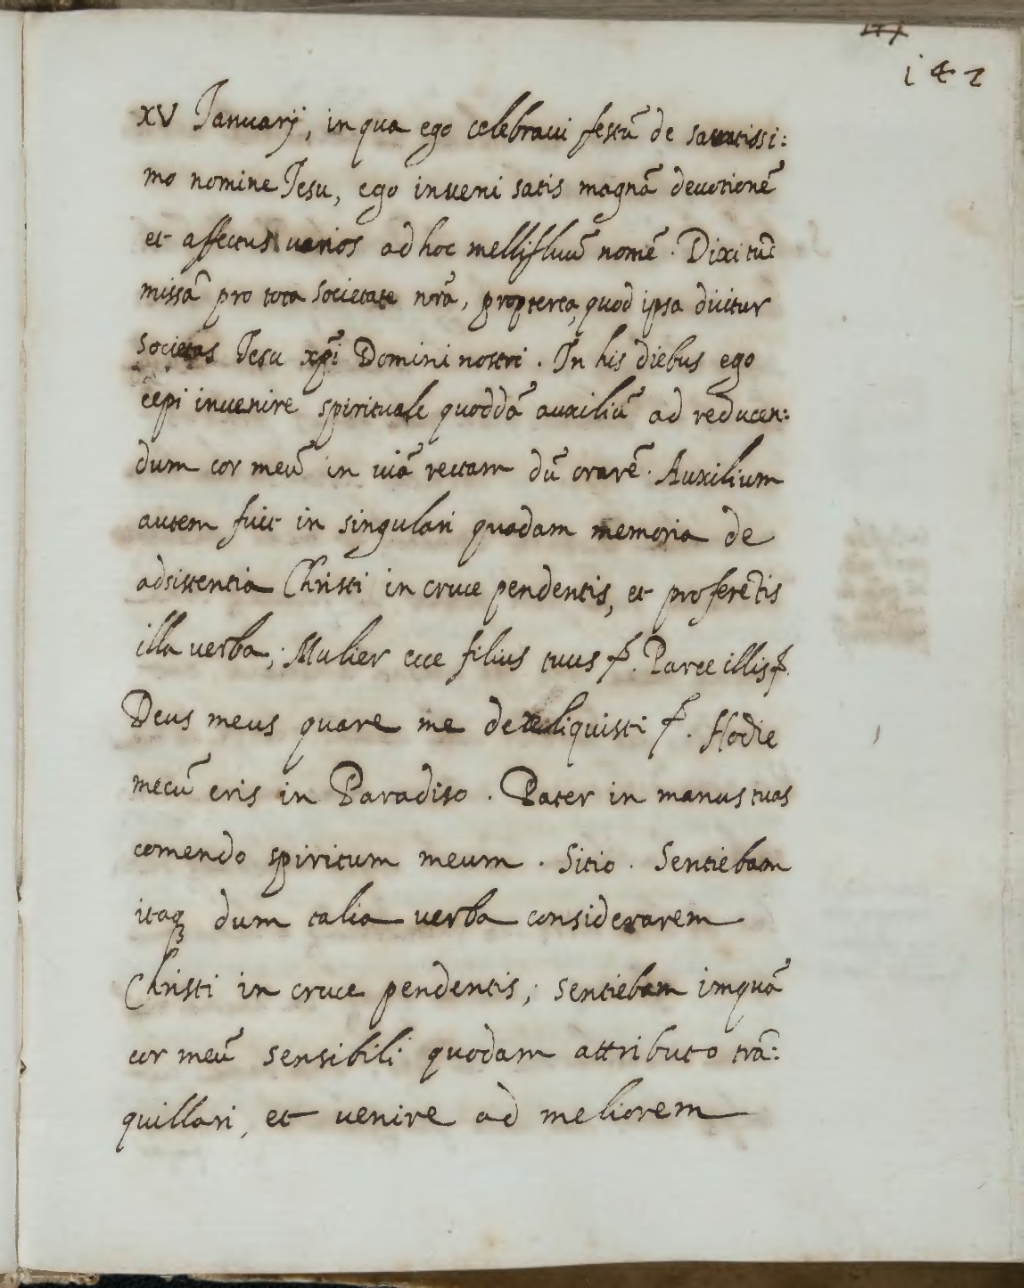 142
XV Januarij, in qua ego celebraui festũ de sanctissi:
mo nomine Jesu, ego inueni satis magnã deuotionẽ
et affectus uarios ad hoc mellifluũ nomẽ. Dixi tũc
missã pro tota societate nr̃a, propterea, quod ipsa dicitur
societas Jesu xp̃i Domini nostri. In his diebus ego
cepi inuenire spirituale quoddã auxiliũ ad reducen:
dum cor meũ in uiã rectam dũ orarẽ. Auxilium
autem fuit in singulari quadam memoria de
adsistentia Christi in cruce pendentis, et proferẽtis
illa uerba; Mulier ecce filius tuus &. Parce illis &.
Deus meus quare me dereliquisti &. Hodie
mecũ eris in Paradiso. Pater in manus tuas
comendo spiritum meum. Sitio. Sentiebam
itaq dum talia uerba considerarem
Christi in cruce pendentis; sentiebam imquã
cor meũ sensibili quodam attributo trã:
quillari, et uenire ad meliorem